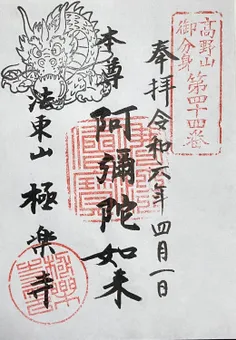 高野山
御分身
第四十四巻
奉拝令和六年四月一日
本尊
阿彌陀如来
法東山 極楽寺
極樂寺